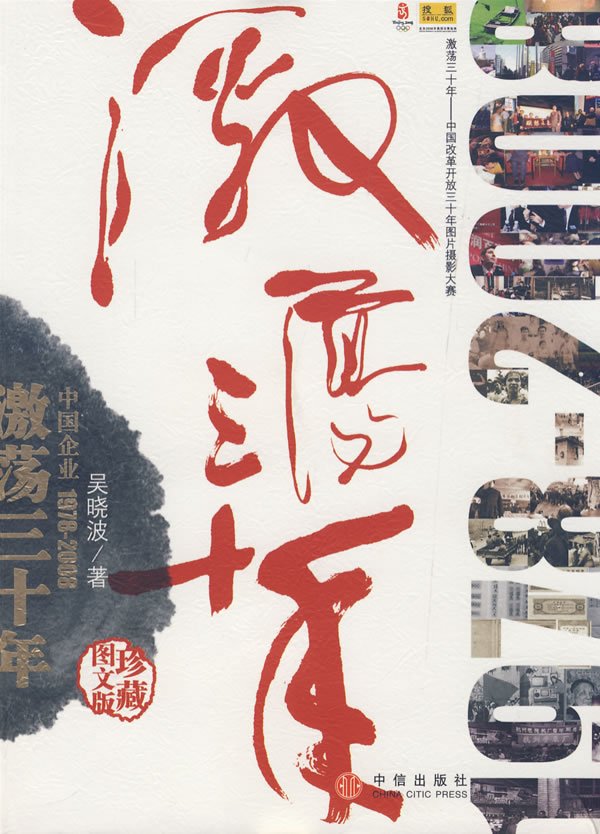 Beijing 2008
搜狐
SOHU.com
激荡三十年——中国改革开放三十年图片摄影大赛
激荡三十年
1978-2008
中国企业 1978-2008
激荡三十年
吴晓波/著
珍藏
图文版
中信出版社
CHINA CITIC PRESS